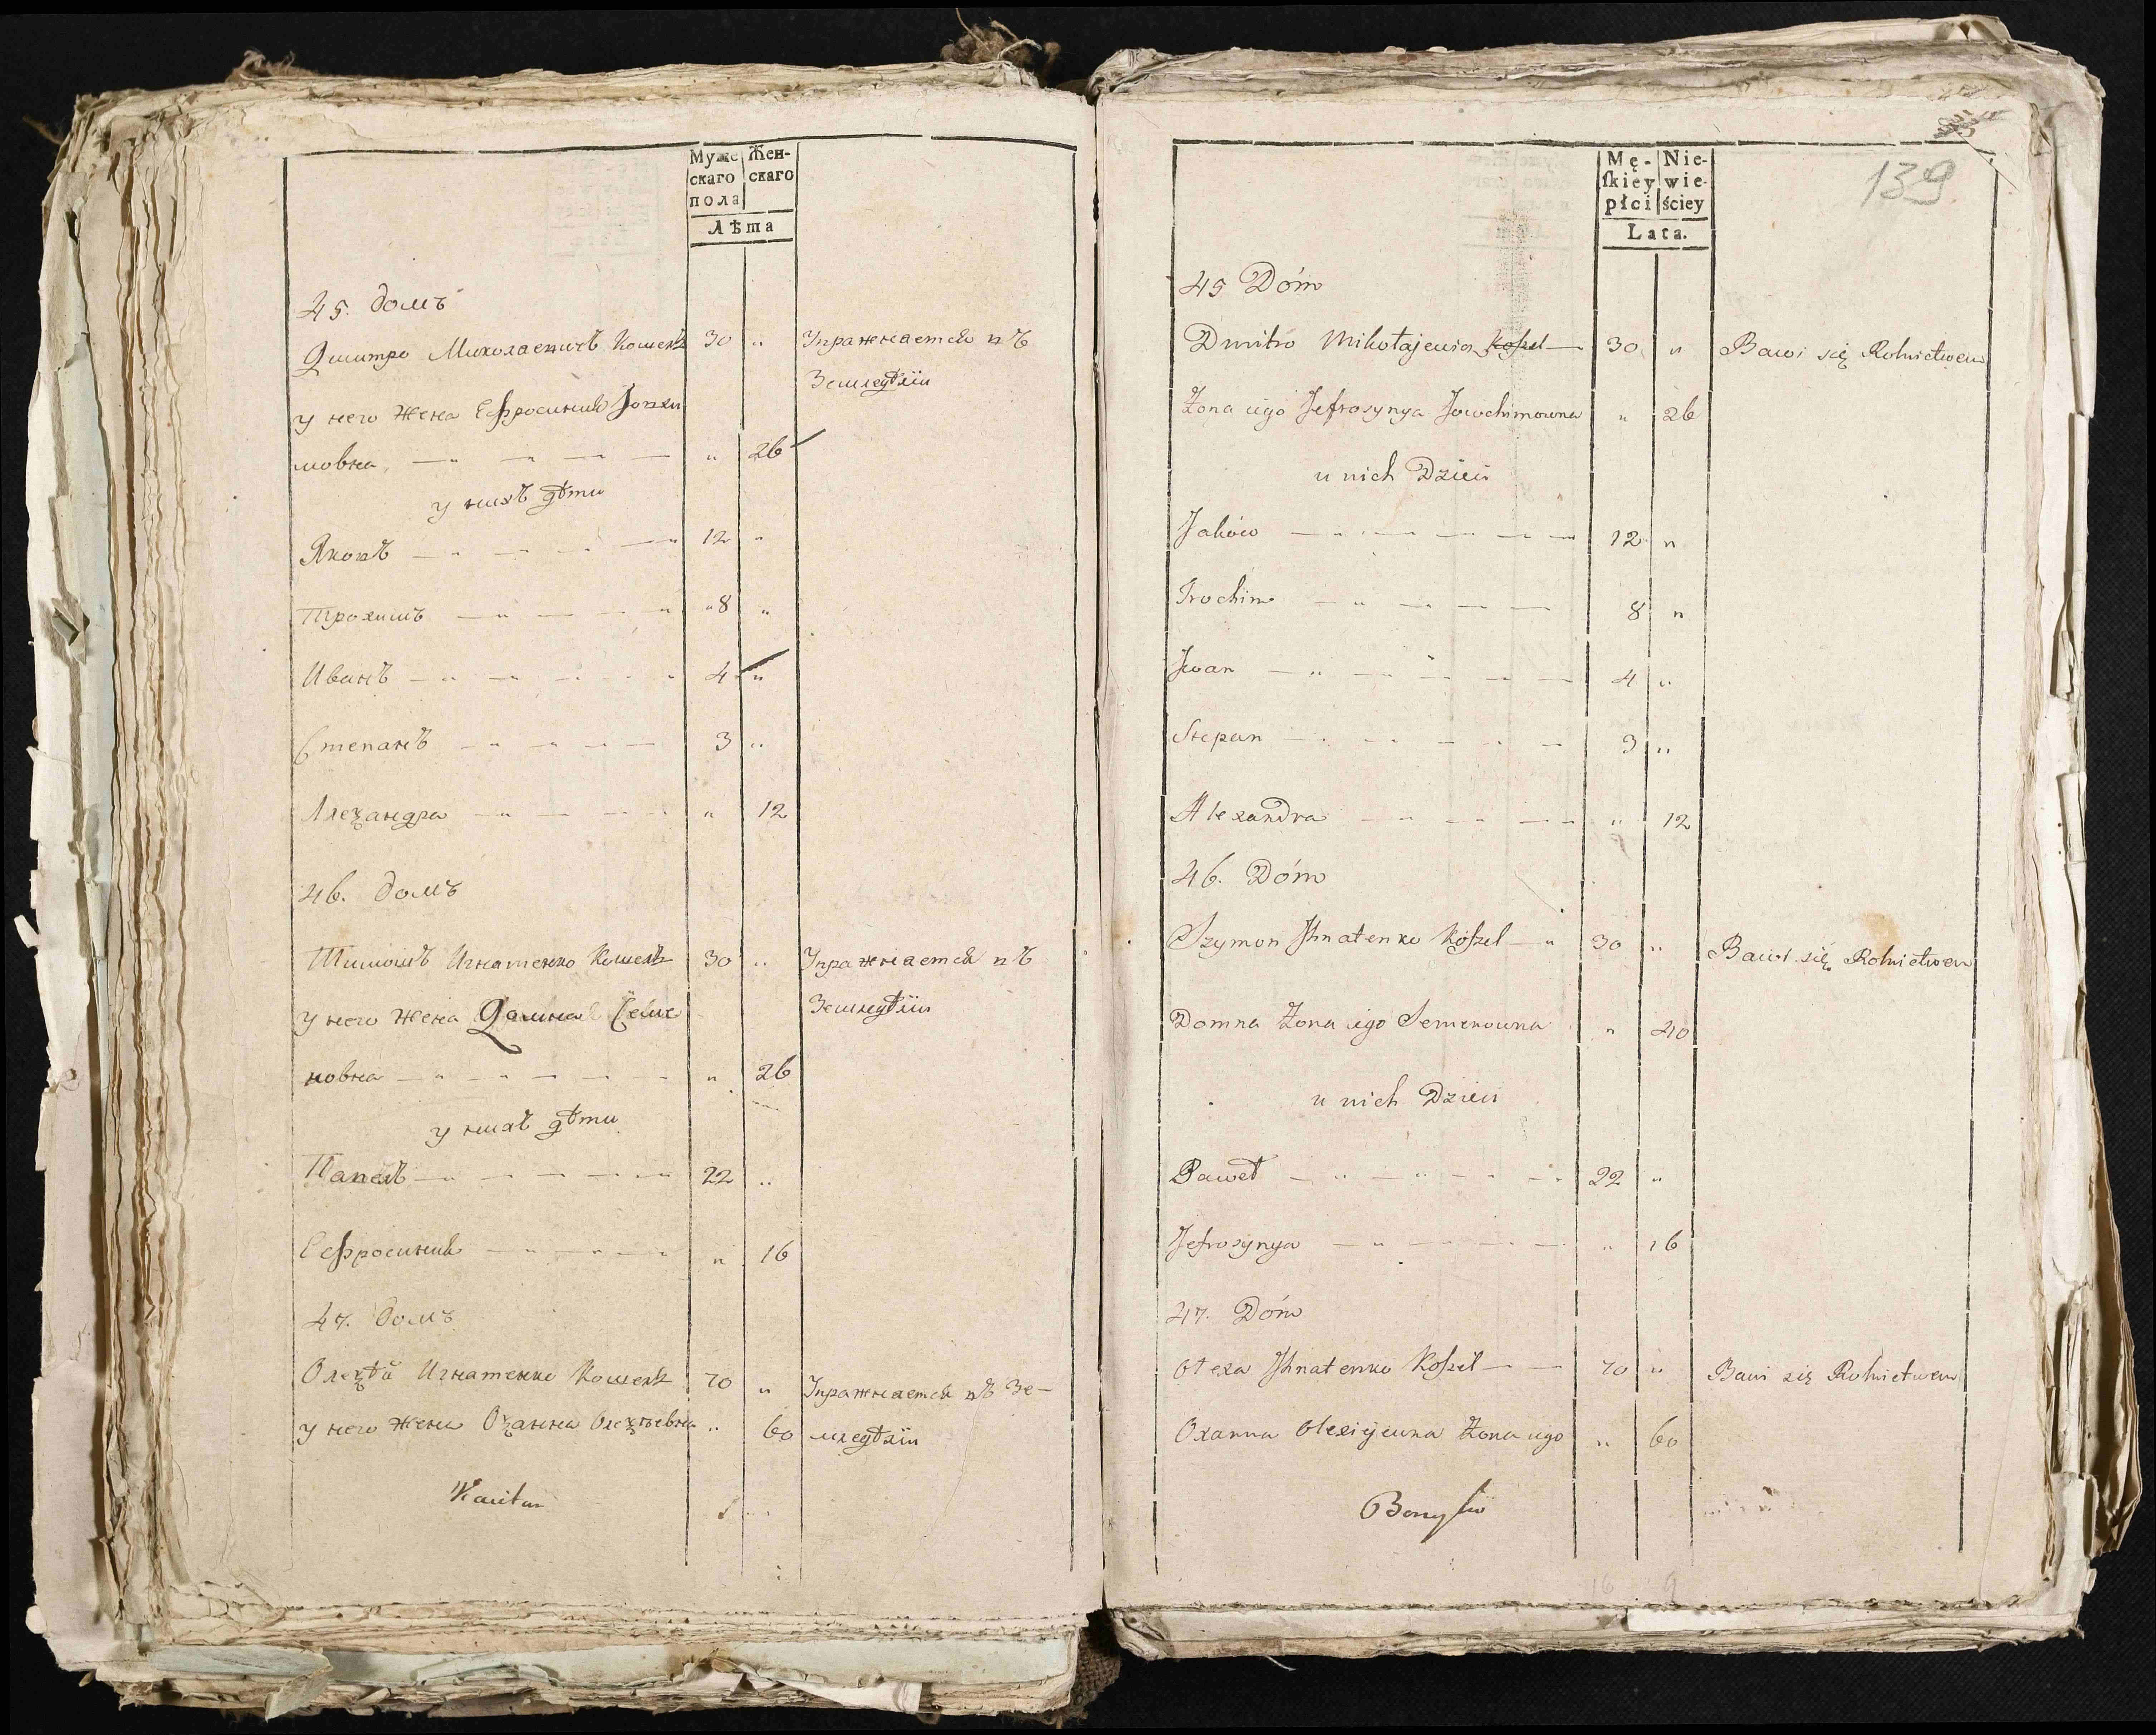 Муже
скаго
пола
Жен-
скаго
Лѣта
45. домъ
Дмитро Миколаевичъ Кошель 30 "
Упражняется въ
Земледѣліи
у него жена Ефросинія Іохи
мовна " 26
у нихъ дѣти
Яковъ 12 "
Трохимъ " 8 "
Иванъ 4 "
Степанъ 3 "
Алеѯандра " 12
46. домъ
Тимошъ Игнатенко Кошель 30 "
Упражняется въ
Земледѣліи
у него жена Домна Семе
новна " 26
у нихъ дѣти
Павелъ 22 "
Ефросинія " 16
47. домъ
Олеѯѣй Игнатенко Кошель 70 "
Упражняется въ Зе-
у него жена Оѯанна Олеѯѣевна " 60
мледѣліи
139
Mę-
skiey
płci
Nie-
wie-
ściey
Lata.
45 Dóm
Dmitro Mikołajewicz Koszel 30 " Bawi się Rolnictwem
Żona iego Jefrosynya Jowchimowna " 26
u nich Dzieci
Jaków 12 "
Trochim 8 "
Jwan 4 "
Stepan 3 "
Alexandra " 12
46. Dóm
Szymon Ihnatenko Koszel 30 " Bawi się Rolnictwem
Domna Żona iego Semenowna " 40
u nich Dzieci
Paweł 22 "
Jefrosynya " 16
47. Dóm
Ołexa Ihnatenko Koszel 70 " Bawi się Rolnictwem
Oxanna Olexiyewna Żona iego " 60
16 9